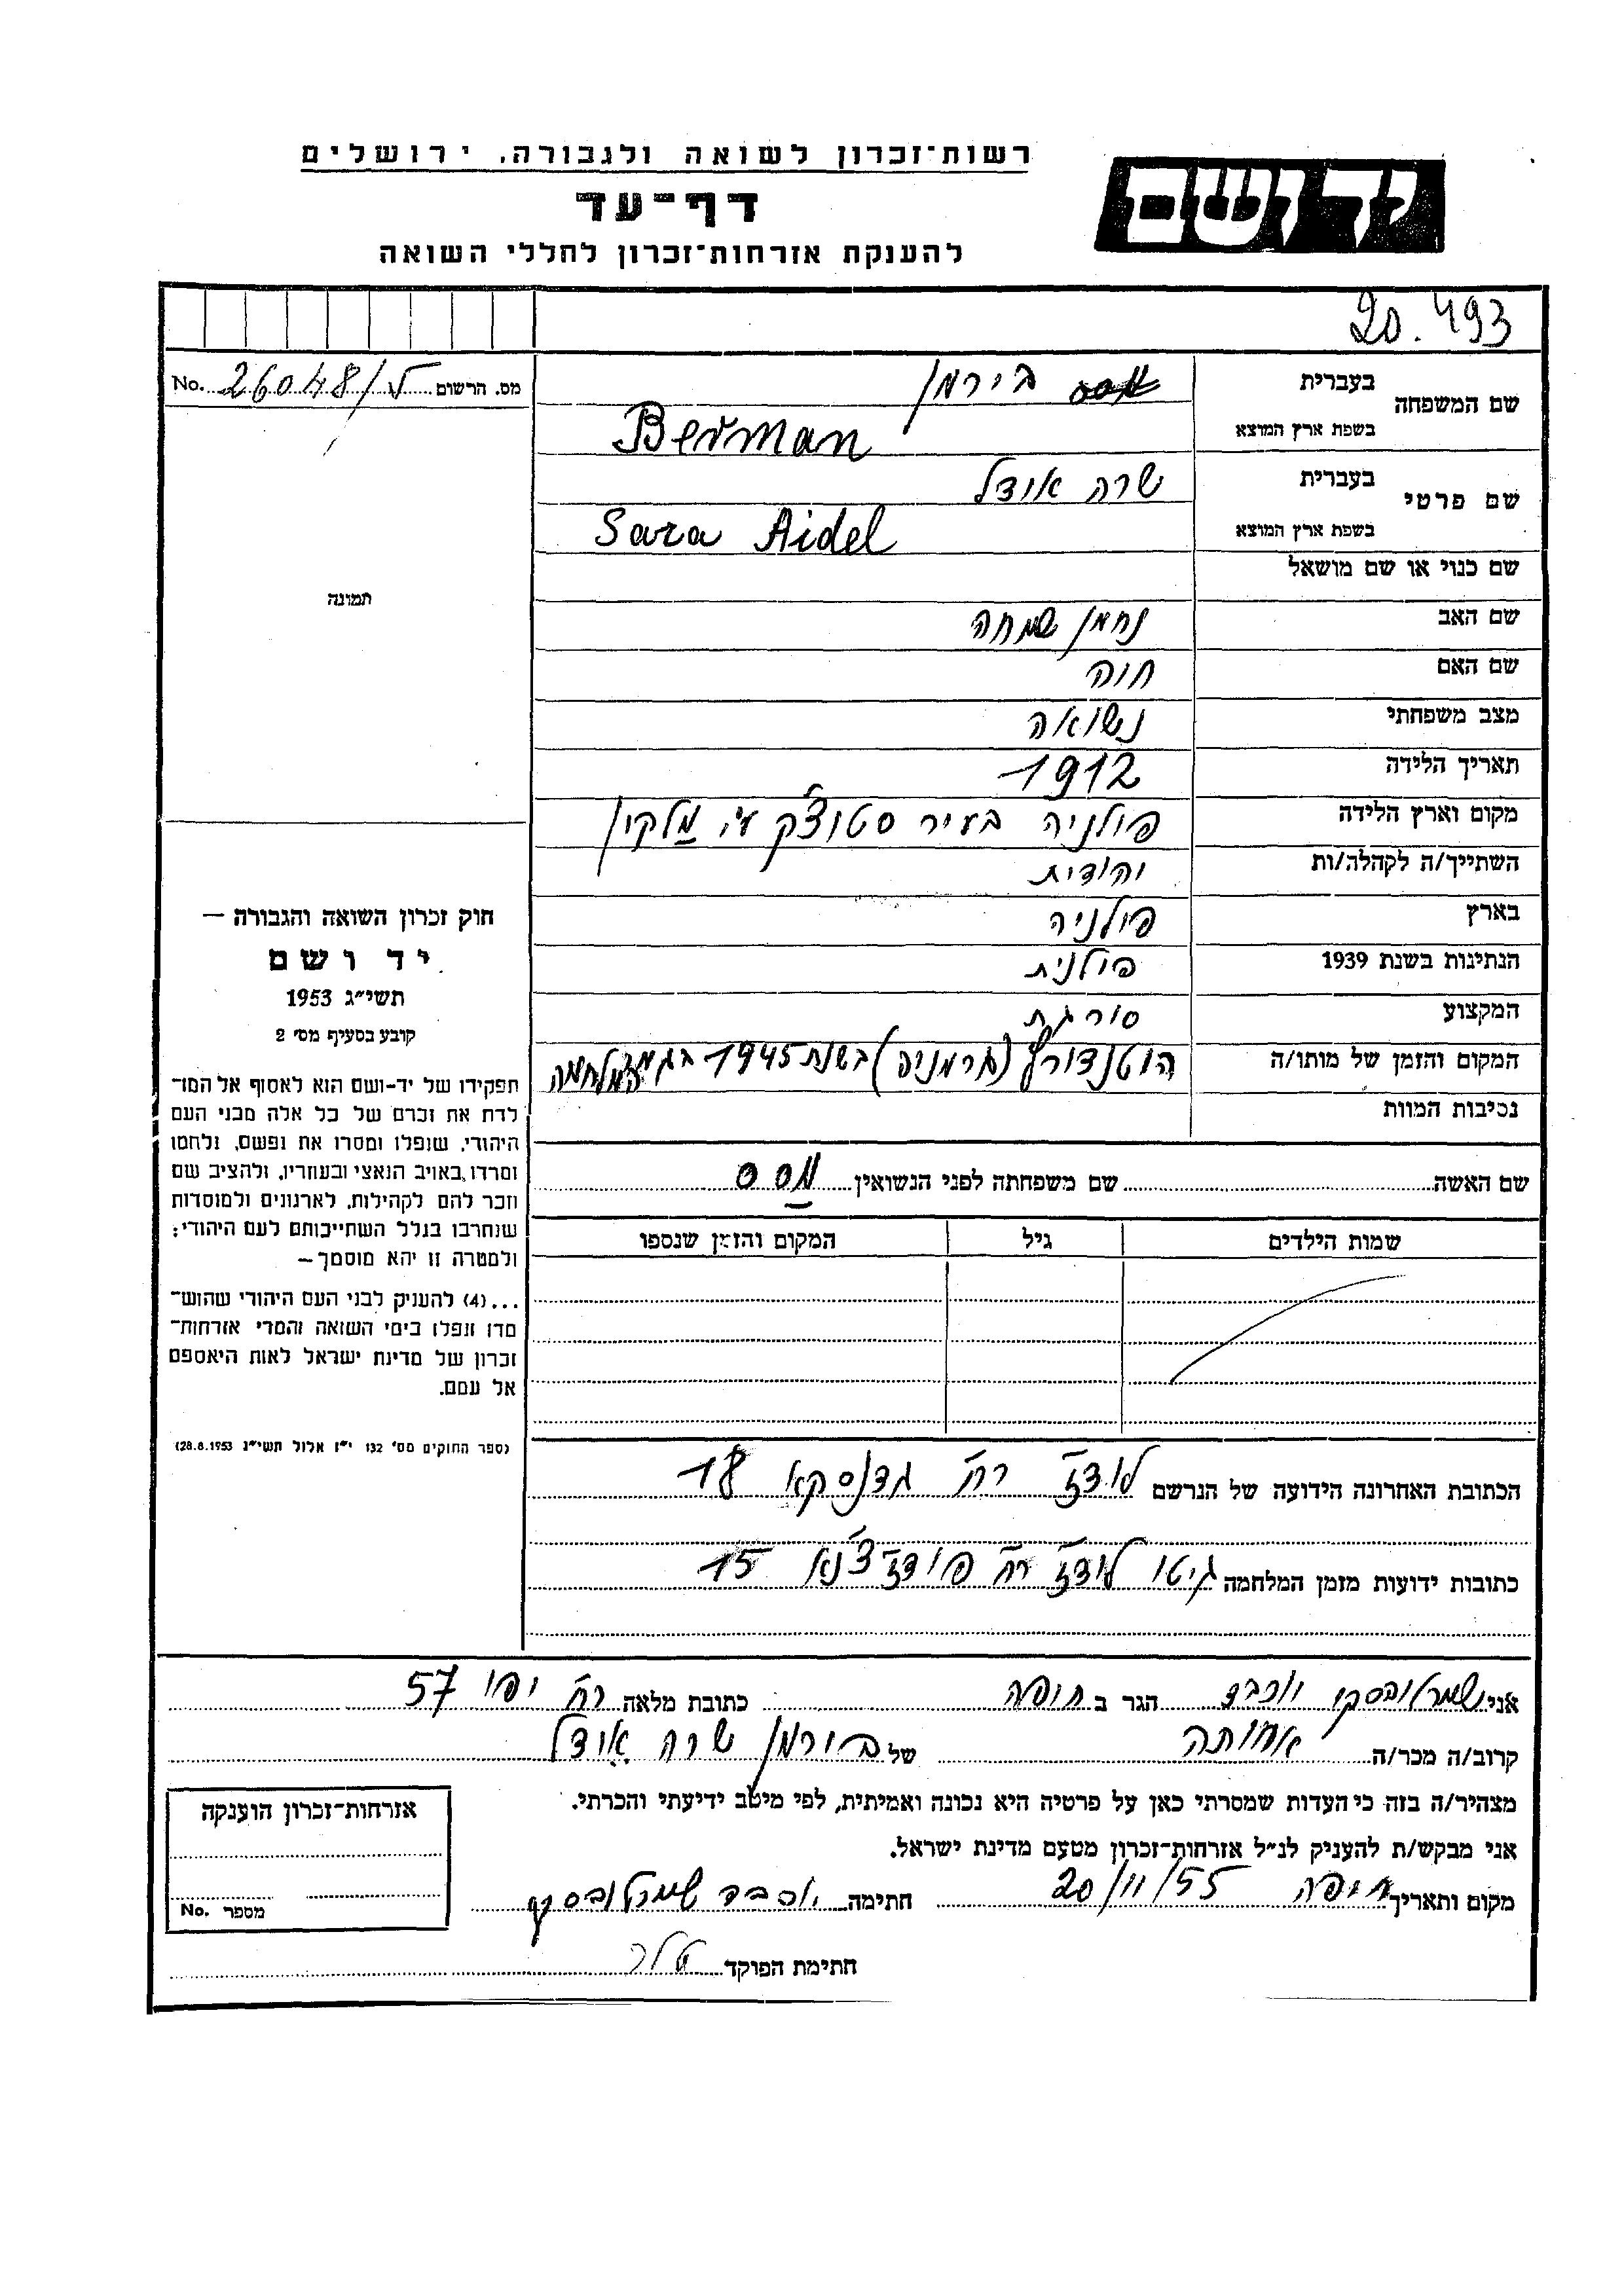 רשות־זכרון לשואה ולגבורה, ירושלים
יד ושם
דף־עד
להענקת אזרחות־זכרון לחללי השואה
20.493
שם המשפחה בעברית בירמן
בשפת ארץ המוצא Berman
מס. הרשום 26048/ No.
שם פרטי בעברית שרה אידל
בשפת ארץ המוצא Sara Aidel
שם כנוי או שם מושאל
תמונה
שם האב נחמן שמחה
שם האם חוה
מצב משפחתי נשואה
תאריך הלידה 1912
מקום וארץ הלידה פולניה בעיר סטוצ'ק ע"י מלקין
השתייך/ה לקהלה/ות יהודית
בארץ פולניה
הנתינות בשנת 1939 פולנית
המקצוע סורגת
המקום והזמן של מותו/ה (גרמניה) בשנת 1945 בגמר המלחמה
נסיבות המוות
שם האשה שם משפחתה לפני הנשואין מסס
שמות הילדים גיל המקום והזמן שנספו
חוק זכרון השואה והגבורה —
יד ושם
תשי״ג 1953
קובע בסעיף מס׳ 2
תפקידו של יד-ושם הוא לאסוף אל המו־
לדת את זכרם של כל אלה מבני העם
היהודי, שנפלו ומסרו את נפשם, נלחמו
ומרדו באויב הנאצי ובעוזריו, ולהציב שם
וזכר להם לקהילות, לארגונים ולמוסדות
שנחרבו בגלל השתייכותם לעם היהודי;
ולמטרה זו יהא מוסמך—
...(4) להעניק לבני העם היהודי שהוש־
מדו ונפלו בימי השואה והמרי אזרחות־
זכרון של מדינת ישראל לאות היאספם
אל עמם.
(ספר החוקים מס׳ 132 י״ז אלול תשי״ג 28.8.1953)
הכתובת האחרונה הידועה של הנרשם לודז' רח' גדנסקא 18
כתובות ידועות מזמן המלחמה גיטו לודז' רח' 15
אני הגר ב חיפה כתובת מלאה רח' יפו 57
קרוב/ה מכר/ה אחותה של בירמן שרה אידל
מצהיר/ה בזה כי העדות שמסרתי כאן על פרטיה היא נכונה ואמיתית, לפי מיטב ידיעתי והכרתי.
אני מבקש/ת להעניק לנ״ל אזרחות־זכרון מטעם מדינת ישראל.
מקום ותאריך חיפה 20/11/55 חתימה
חתימת הפוקד
אזרחות־זכרון הוענקה
מספר No.